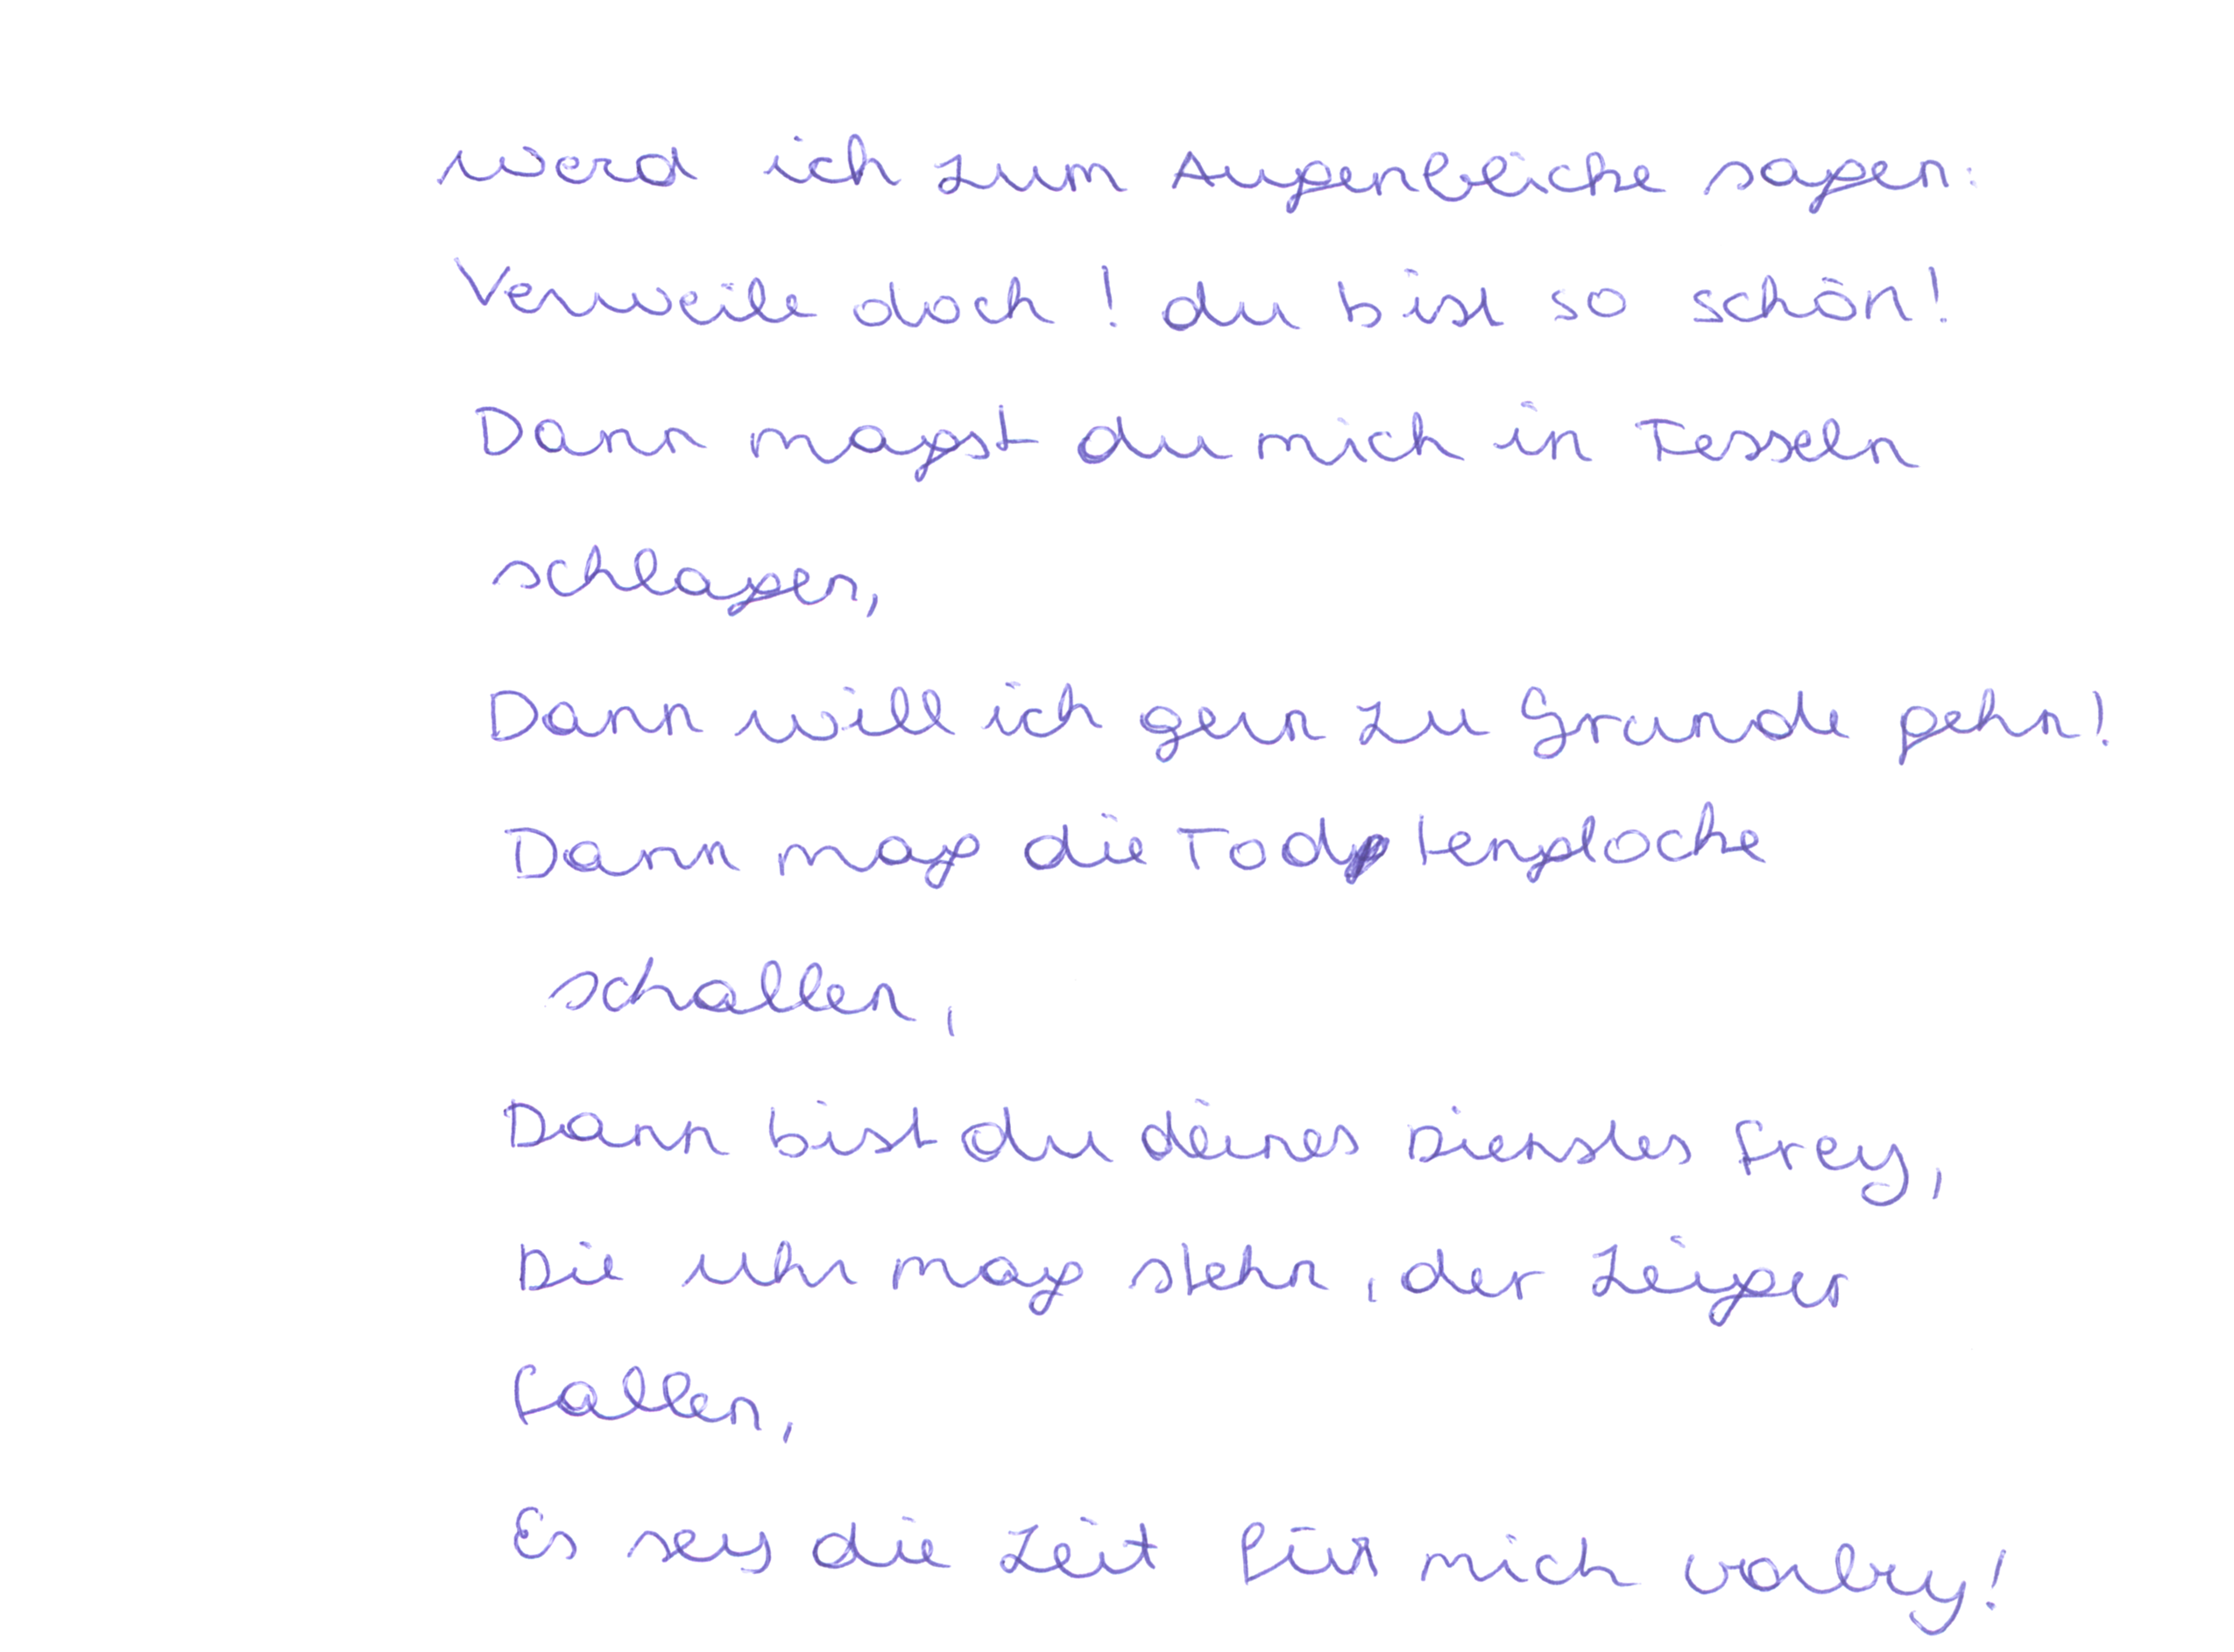 Werd ich zum Augenblicke sagen:
Verweile doch! du bist so schön!
Dann magst du mich in Fesseln
schlagen,
Dann will ich gern zu Grunde gehn!
Dann mag die Todtenglocke
schallen,
Dann bist du deines Dienstes frey,
Die Uhr mag stehn, der Zeiger
fallen,
Es sey die Zeit für mich vorbey!